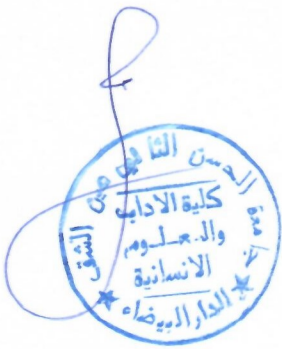 جامعة الحسن الثاني عين الشق
كلية الاداب
والعلوم
الانسانية
الدار البيضاء